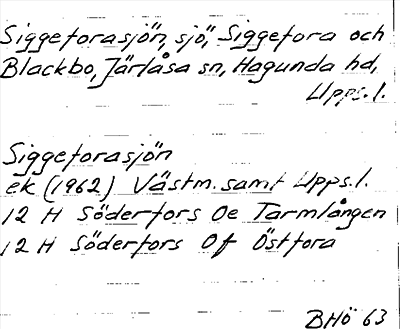 Siggeforasjön, sjö, Siggefora och
Blackbo, Järlåsa sn, Hagunda hd,
Upps.l.
Siggeforasjön
ek (1962) Västm. samt Upps.l.
12 H Söderfors Oe Tarmlången
12 H Söderfors Of Östfora
BHö 63